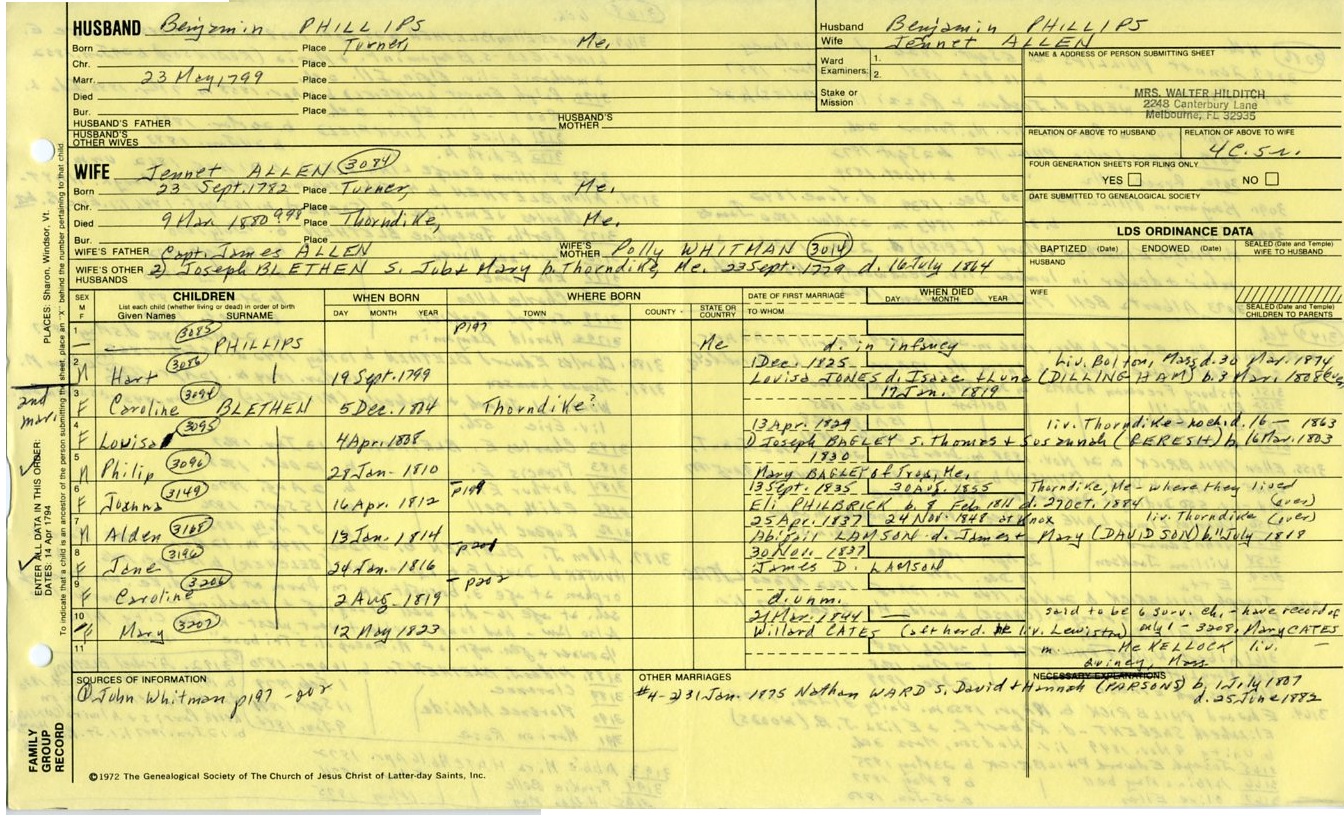 HUSBAND Benjamin PHILLIPS
Born Place Turner, Me.
Chr. Place
Marr. 23 May, 1799 Place
Died Place
Bur. Place
HUSBAND'S FATHER HUSBAND'S MOTHER
HUSBAND'S OTHER WIVES
Husband Benjamin PHILLIPS
Wife Jennet ALLEN
Ward Examiners: 1. 2.
Stake or Mission
NAME & ADDRESS OF PERSON SUBMITTING SHEET
MRS. WALTER HILDITCH
2248 Canterbury Lane
Melbourne, FL 32935
RELATION OF ABOVE TO HUSBAND RELATION OF ABOVE TO WIFE
4C.5r.
FOUR GENERATION SHEETS FOR FILING ONLY
YES NO
DATE SUBMITTED TO GENEALOGICAL SOCIETY
LDS ORDINANCE DATA
BAPTIZED (Date) ENDOWED (Date) SEALED (Date and Temple) WIFE TO HUSBAND
HUSBAND
WIFE
SEALED (Date and Temple) CHILDREN TO PARENTS
WIFE Jennet ALLEN 3084
Born 23 Sept. 1782 Place Turner, Me.
Chr. Place
Died 9 Mar. 1880 Place Thorndike, Me.
Bur. Place
WIFE'S FATHER Capt. James ALLEN WIFE'S MOTHER Polly WHITMAN 3014
WIFE'S OTHER HUSBANDS 2) Joseph BLETHEN s. Job + Mary b. Thorndike, Me. 23 Sept. 1779 d. 16 July 1864
SEX M F CHILDREN WHEN BORN WHERE BORN DATE OF FIRST MARRIAGE WHEN DIED
List each child (whether living or dead) in order of birth
Given Names SURNAME DAY MONTH YEAR TOWN COUNTY STATE OR COUNTRY TO WHOM DAY MONTH YEAR
1 3085 PHILLIPS p197 Me d. in infancy
2 M Hart 3086 19 Sept. 1799 1 Dec. 1825 liv. Bolton, Mass d. 30 Mar. 1874
Lovisa JONES d. Isaac + Lune (DILLINGHAM) b. 3 Mar. 1808 (over)
3 F Caroline 3094 BLETHEN 5 Dec. 1804 Thorndike? 17 Jan. 1819
4 F Lovisa 3095 4 Apr. 1808 13 Apr. 1829 liv. Thorndike - no ch. d. 16 — 1863
1) Joseph BAGLEY s. Thomas + Susannah (PERESH) b. 16 Mar. 1803
5 M Philip 3096 28 Jan. 1810 1830
Mary BAGLEY of Troy, Me.
6 F Joanna 3149 16 Apr. 1812 p199 13 Sept. 1835 30 Aug. 1855 Thorndike, Me - where they lived
Eli PHILBRICK b. 8 Feb 1811 d. 27 Oct. 1884 (over)
7 M Alden 3168 13 Jan. 1814 25 Apr. 1837 24 Nov. 1848 at Knox liv. Thorndike (over)
Abigail LAMSON d. James + Mary (DAVIDSON) b. 11 July 1818
8 F Jane 3196 24 Jan. 1816 p201 30 Nov. 1837
James D. LAMSON
9 F Caroline 3206 2 Aug. 1819 p202 d. unm.
10 F Mary 3207 12 May 1823 21 Mar. 1844 said to be 6 surv. ch. - have record of
Willard CATES liv. Lewiston) only 1 - 3208, Mary CATES
11 m. McKELLOCK liv.
Quincy, Mass
SOURCES OF INFORMATION
① John Whitman p197-202
OTHER MARRIAGES
#4 - 2) 31 Jan. 1875 Nathan WARD s. David + Hannah (PARSONS) b. 1 July 1807
d. 25 June 1882
NECESSARY EXPLANATIONS
2nd marr.
PLACES: Sharon, Windsor, Vt.
ENTER ALL DATA IN THIS ORDER:
DATES: 14 Apr 1794
To indicate that a child is an ancestor of the person submitting the sheet, place an "X" behind the number pertaining to that child.
FAMILY GROUP RECORD
©1972 The Genealogical Society of The Church of Jesus Christ of Latter-day Saints, Inc.